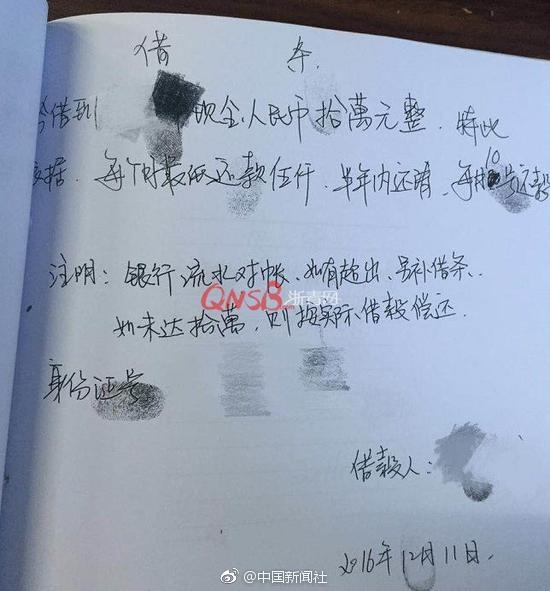 借 条.
今借到 现金人民币拾萬元整. 特此
据. 每个月最低还款伍仟. 半年内还清、每月10号还款
注明: 银行流水对帐、如有超出、另补借条、
QNSB浙青网
如未达拾萬, 则按实际借款偿还.
身份证号
借款人:
2016年12月11日.
@中国新闻社